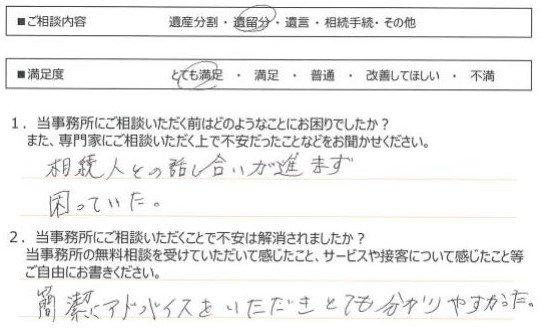 ■ご相談内容 遺産分割・遺留分・遺言・相続手続・その他
■満足度 とても満足 ・ 満足 ・ 普通 ・ 改善してほしい ・ 不満
1．当事務所にご相談いただく前はどのようなことにお困りでしたか？
また、専門家にご相談いただく上で不安だったことなどをお聞かせください。
相続人との話し合いが進まず
困っていた。
2．当事務所にご相談いただくことで不安は解消されましたか？
当事務所の無料相談を受けていただいて感じたこと、サービスや接客について感じたこと等
ご自由にお書きください。
簡潔にアドバイスをいただきとても分かりやすかった。